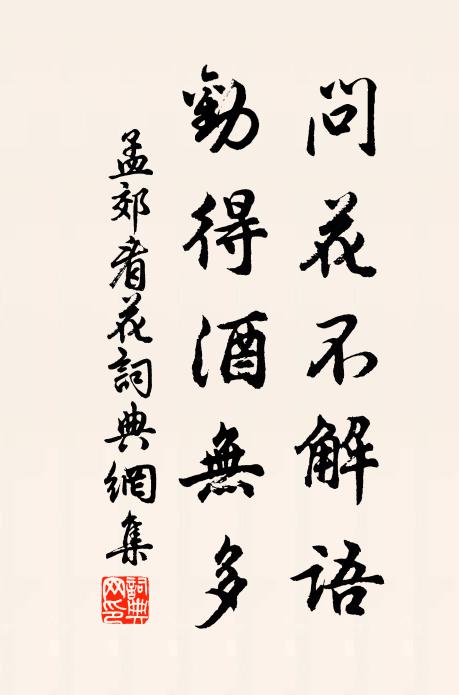 問花不解語
勸得酒無多
孟郊看花詞典網集
詞典網印